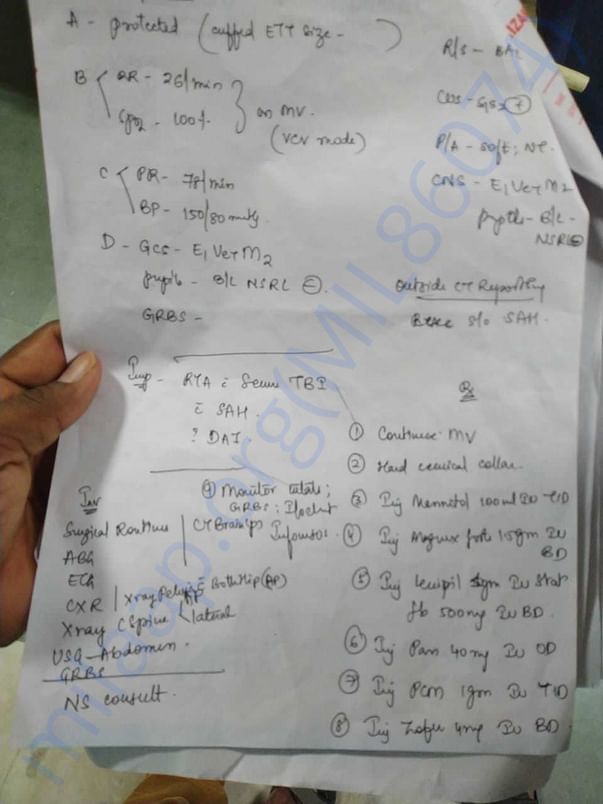 A - protected (cuffed ETT size -       )
B
RR - 26/min
SpO2 - 100%
on MV.
(VCV mode)
C
PR - 78/min
BP - 150/80 mmHg
D - GCS - E1 VET M2
pupils - B/L NSRL
GRBS -
R/S - BAE
P/A - soft, NT.
CNS - E1 VET M2
pupils - B/L -
NSRL
Outside CT Reporting
s/o SAH.
Imp - RTA c̄ Severe TBI
c̄ SAH.
? DAI.
Rx
① Continue MV
② Hard cervical collar
③ Inj Mannitol 100ml IV TID
④ Inj Magnex forte 1.5gm IV
BD
⑤ Inj Levipil 1gm IV Stat
fb 500mg IV BD.
⑥ Inj Pan 40mg IV OD
⑦ Inj PCM 1gm IV TID
⑧ Inj Zofer 4mg IV BD.
⑨ Monitor vitals;
GRBS; I/O chart
Inv
Surgical Routine
CT Brain (P)
ABG
ECG
CXR | Xray Pelvis c̄ Both Hip (AP)
Xray C Spine AP lateral
USG - Abdomen.
GRBS
NS consult.
milaap.org(MIL86074)